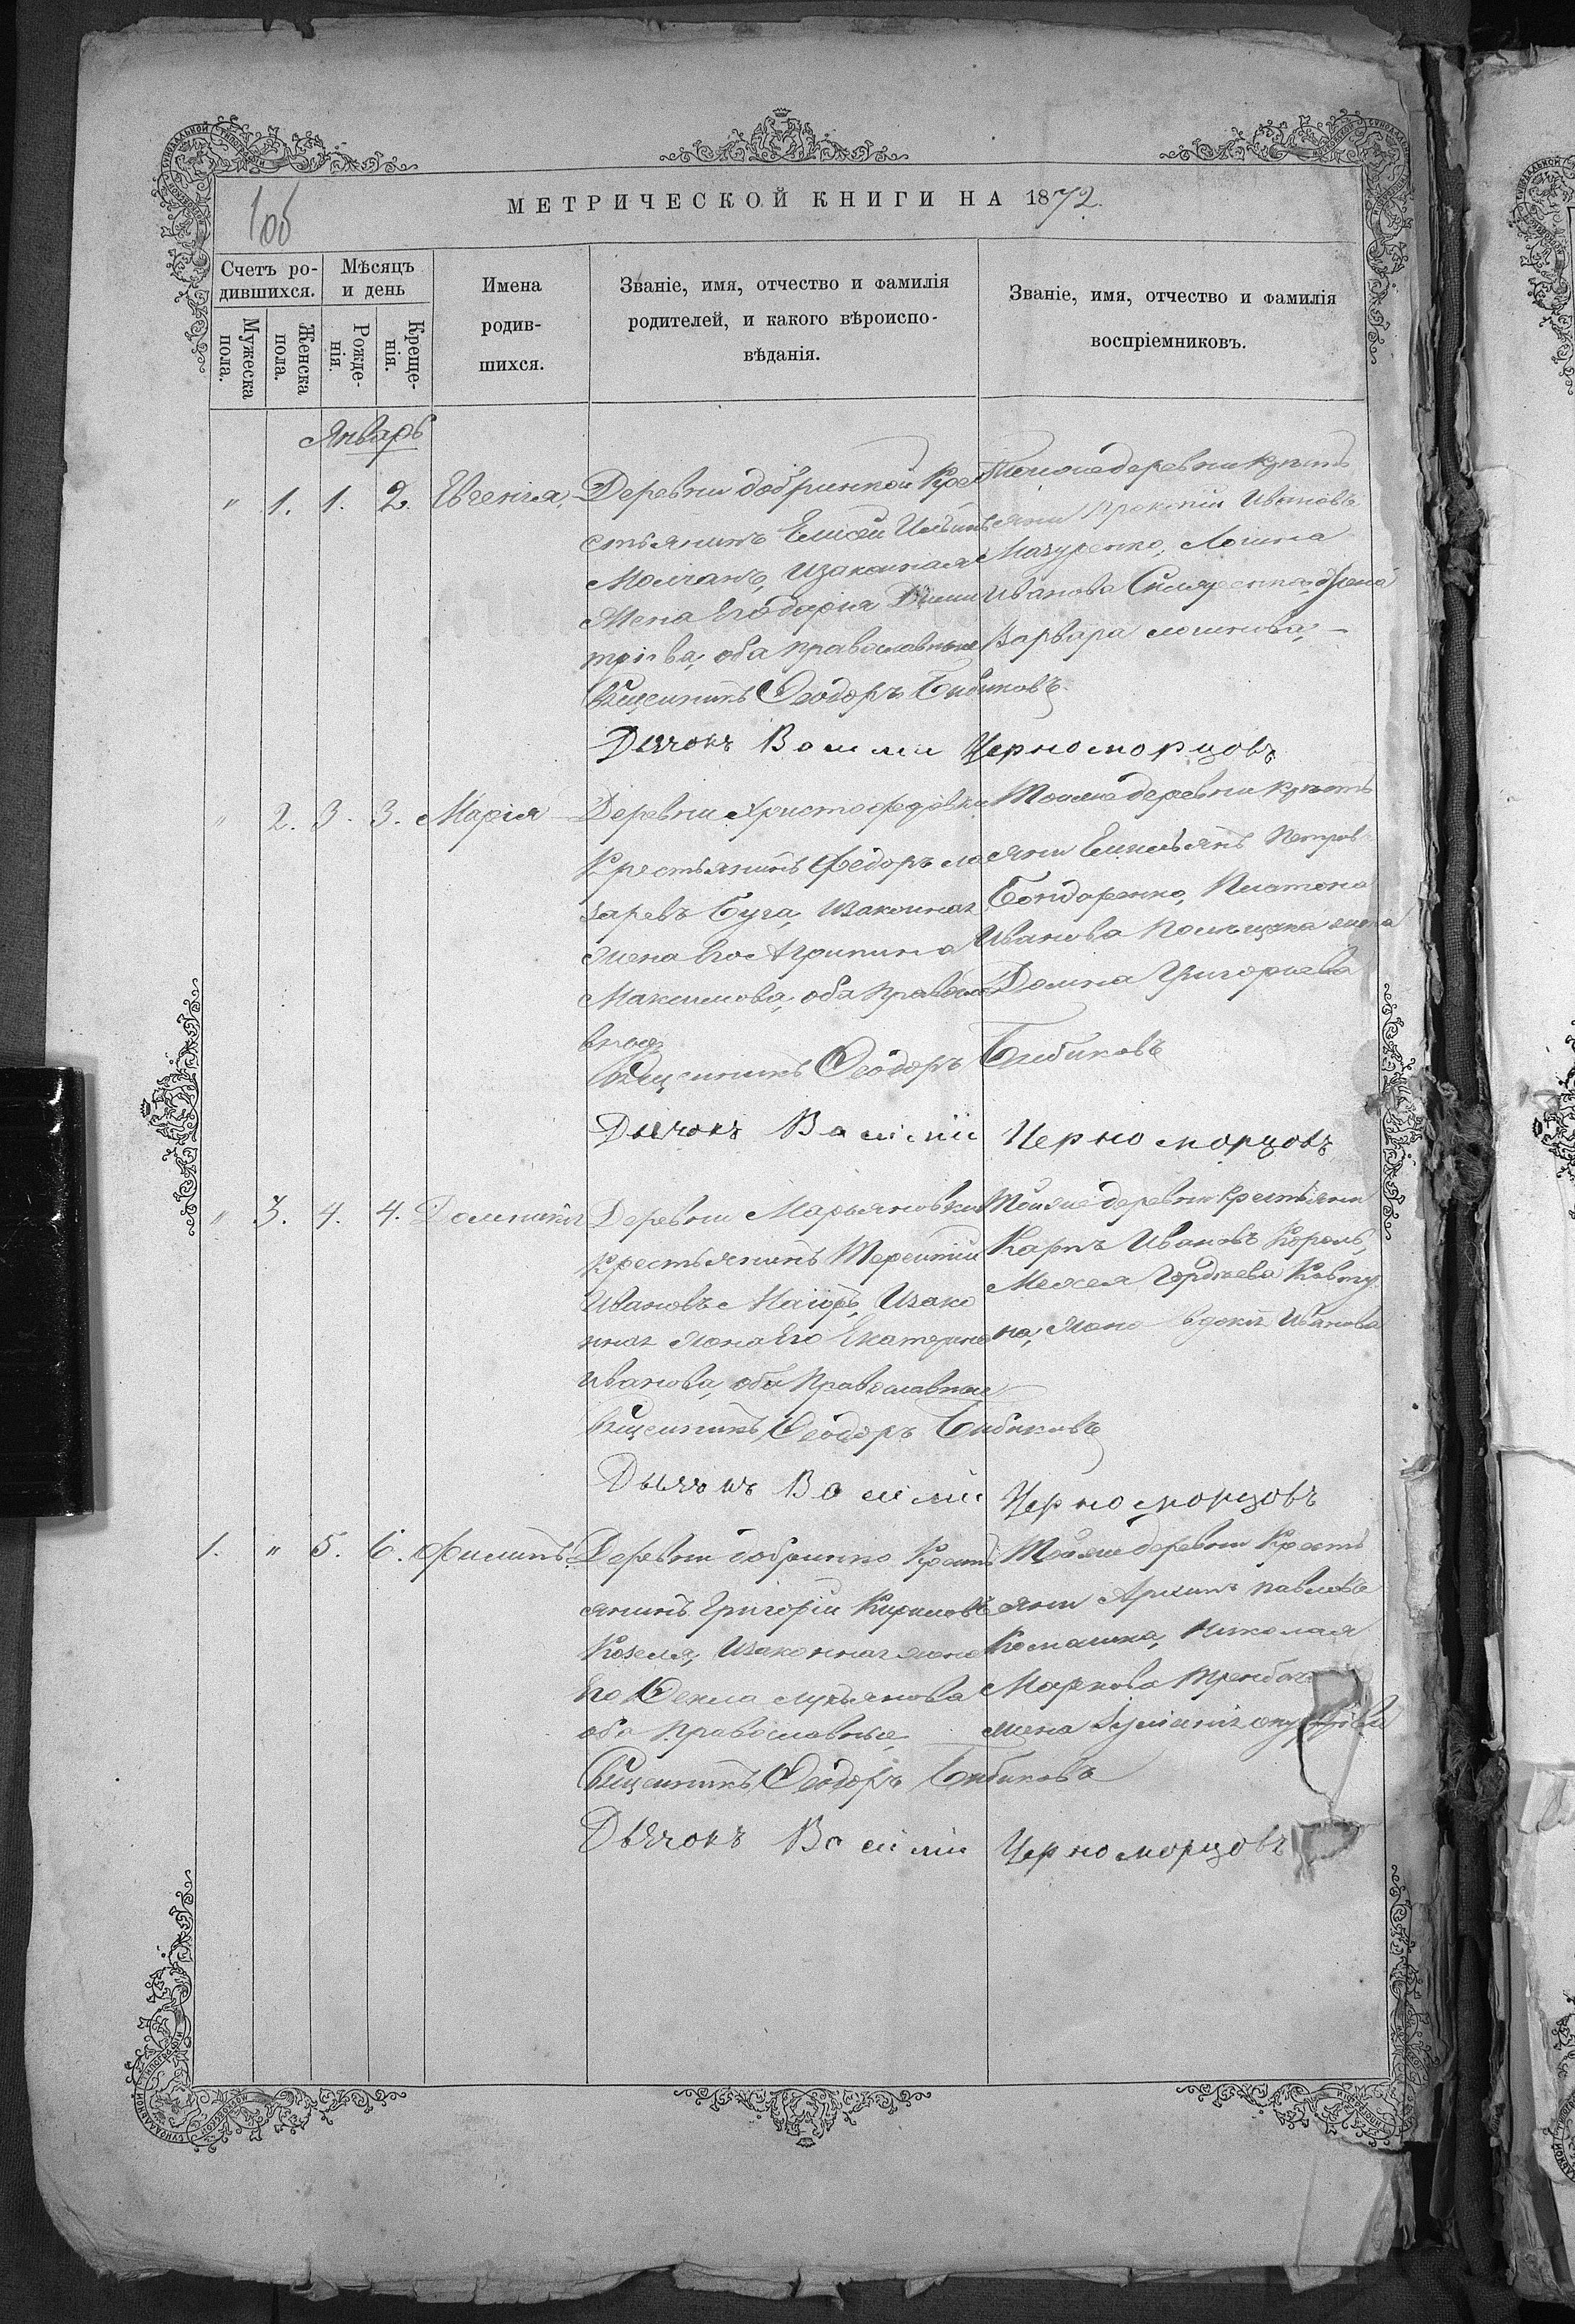 1об
МЕТРИЧЕСКОЙ КНИГИ НА 1872.
Счетъ ро-
дившихся.
Мѣсяцъ
и день
Мужеска
пола.
Женска
пола.
Рожде-
нія.
Креще-
нія.
Имена
родив-
шихся.
Званіе, имя, отчество и фамилія
родителей, и какого вѣроиспо-
вѣданія.
Званіе, имя, отчество и фамилія
воспріемниковъ.
Январь
" 1. 1. 2. Евгенія,
Деревни добринкой Кре
стьянинъ Елисей
Молчанъ, Изаконная
Жена Его дарія Дими
тріева, оба православные
Тойже деревни Крестъ
яни Прокопій Ивановъ
Мазуренко, Логина
Иванова жена
Варвара
Священникъ Ѳеодоръ Бибиковъ
Дьячокъ Василій Черноморцовъ
" 2. 3. 3. Марія
Деревни Христофоровки
Крестьянинъ Ѳедоръ ла
заревъ Буга, Изаконная
жена Его Агрипина
Максимова, оба Правосла
вною
Тойже деревни Крестъ
яни Емельянъ Петровъ
Бондаренко, Платона
Иванова жена
Домна Григорьева
Священникъ Ѳеодоръ Бибиковъ
Дьячокъ Василій Черноморцовъ
" 3. 4. 4. Домникія
Деревни Марьяновки
Крестьянинъ Терентій
Ивановъ Изако
нная жена Его Екатерина
Иванова, оба Православные
Тойже деревни Крестьяни
Карпъ Ивановъ Король,
Гордѣева Ковту
на, жена Иванова
Священникъ Ѳеодоръ Бибиковъ
Дьячокъ Василій Черноморцовъ
1. " 5. 6. Филипъ.
Деревни добринко Кресть
янинъ Григорій Кириловъ
Козелъ, Изаконная жена
Его Ѳекла лукьянова
оба Православные
Тойже деревни Кресть
яни Архипъ Павловъ
Николая
Маркова
жена
Священникъ Ѳеодоръ Бибиковъ
Дьячокъ Василій Черноморцовъ